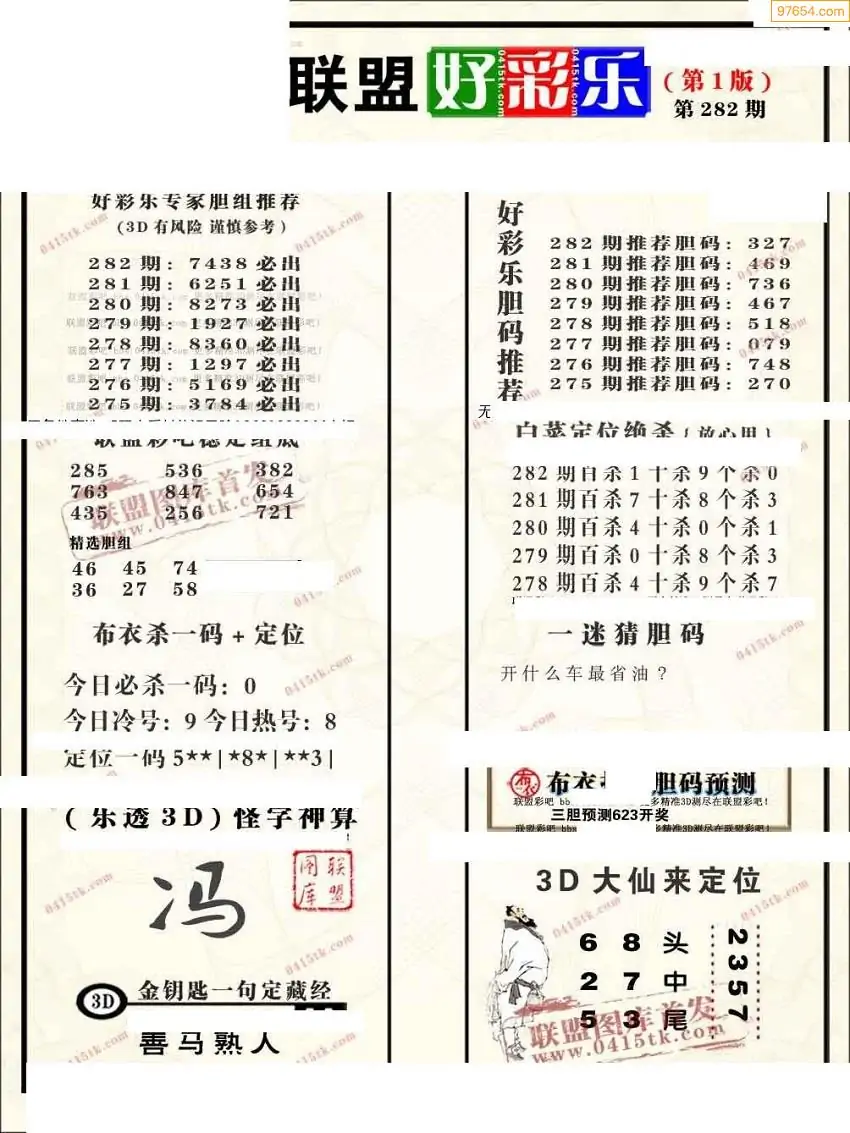 97654.com
联盟好彩乐
(第1版)
第282期
好彩乐专家胆组推荐
(3D有风险 谨慎参考)
282期: 7438必出
281期: 6251必出
280期: 8273必出
279期: 1927必出
278期: 8360必出
277期: 1297必出
276期: 5169必出
275期: 3784必出
联盟彩吧稳定组底
285 536 382
763 847 654
435 256 721
联盟图库首发
www.0415tk.com
精选胆组
46 45 74
36 27 58
布衣杀一码+定位
今日必杀一码: 0
今日冷号: 9 今日热号: 8
定位一码 5**|*8*|**3|
(乐透3D)怪字神算
冯
联盟图库
3D 金钥匙一句定藏经
善马熟人
好彩乐胆码推荐
282期推荐胆码: 327
281期推荐胆码: 469
280期推荐胆码: 736
279期推荐胆码: 467
278期推荐胆码: 518
277期推荐胆码: 079
276期推荐胆码: 748
275期推荐胆码: 270
无
白菜定位绝杀{放心用}
282期百杀1十杀9个杀0
281期百杀7十杀8个杀3
280期百杀4十杀0个杀1
279期百杀0十杀8个杀3
278期百杀4十杀9个杀7
一迷猜胆码
开什么车最省油?
布衣 胆码预测
三胆预测623开奖
3D大仙来定位
6 8 头
2 7 中
5 3 尾
2357
联盟图库首发
www.0415tk.com